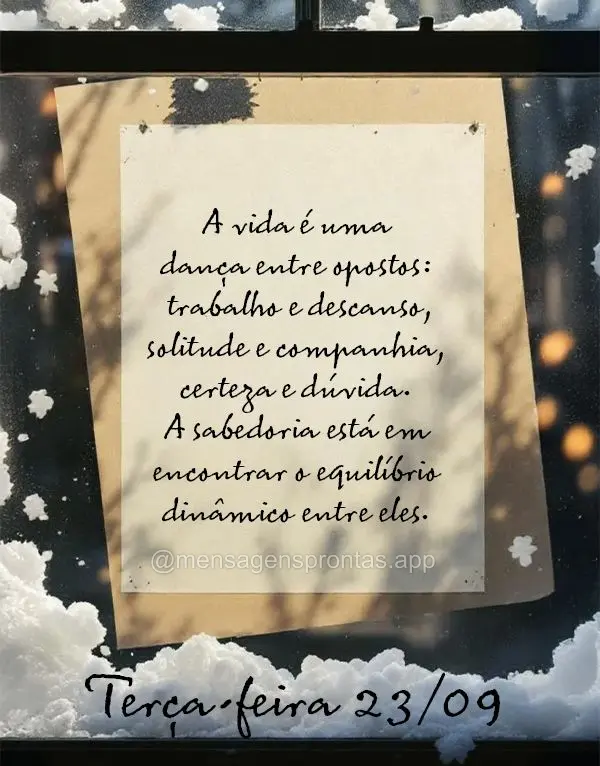 A vida é uma
dança entre opostos:
trabalho e descanso,
solitude e companhia,
certeza e dúvida.
A sabedoria está em
encontrar o equilíbrio
dinâmico entre eles.
@mensagensprontas.app
Terça-feira 23/09